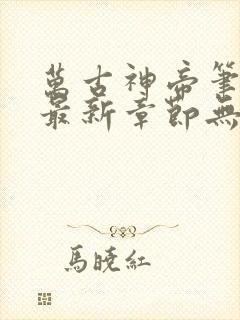 萬古神帝筆
最新章節無
馬曉紅